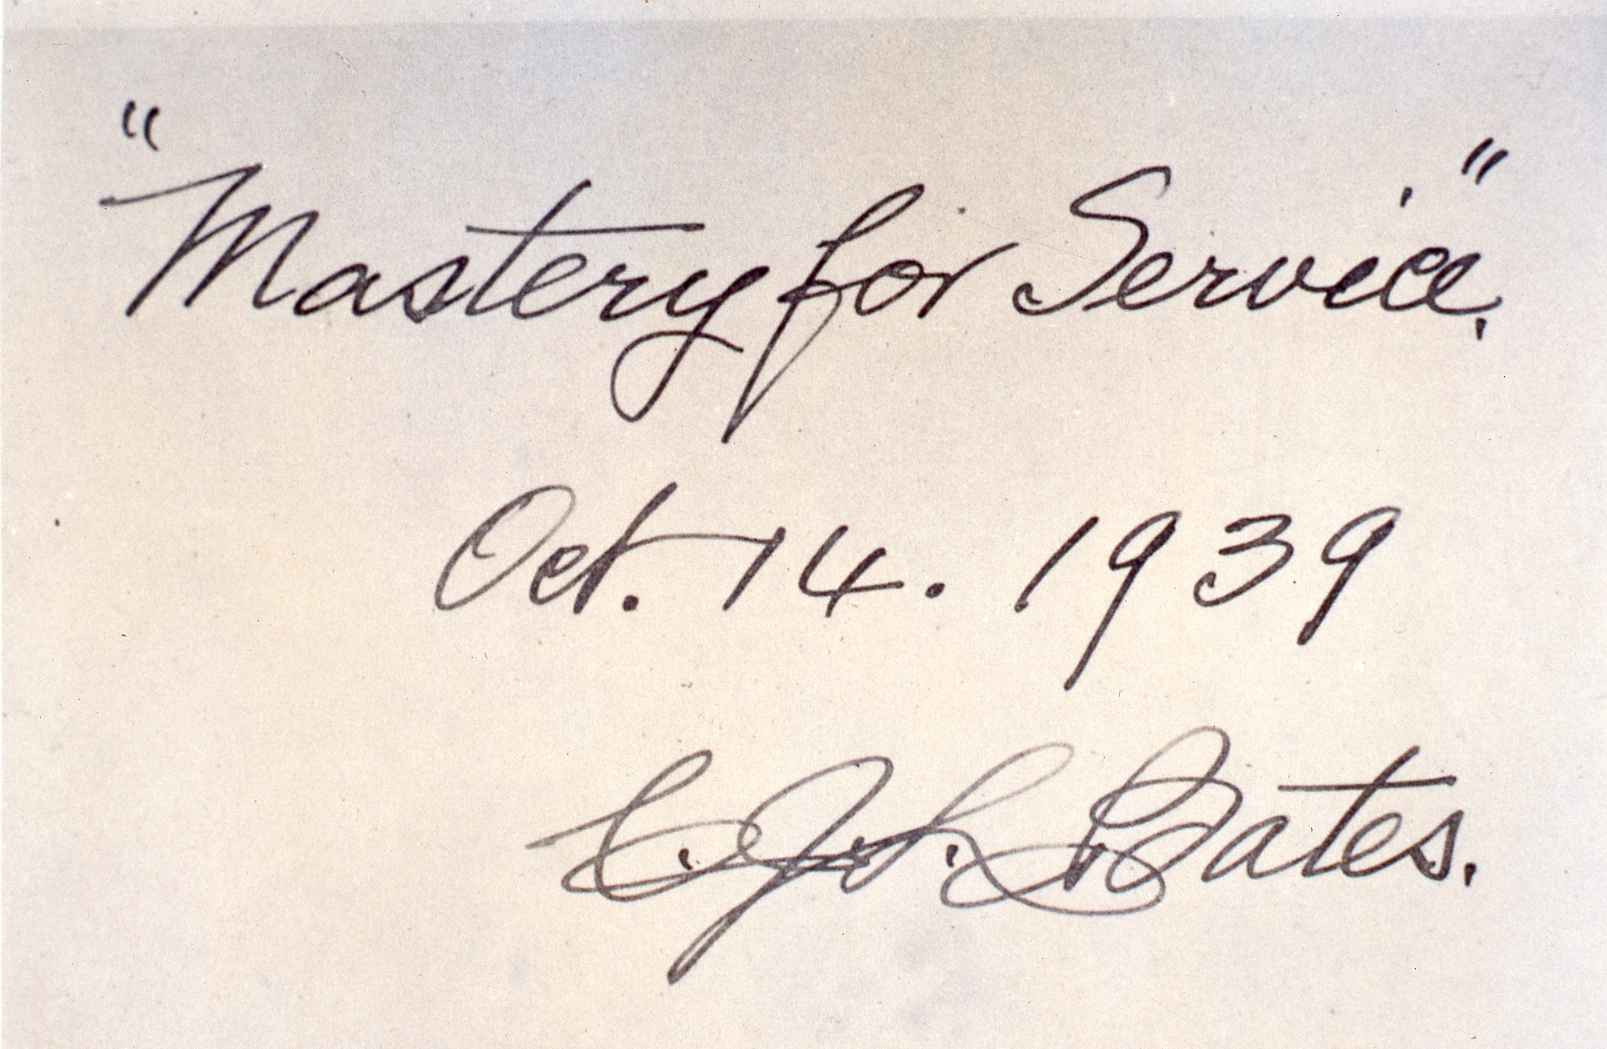 "Mastery for Service."
Oct. 14. 1939
C. J. L. Bates.